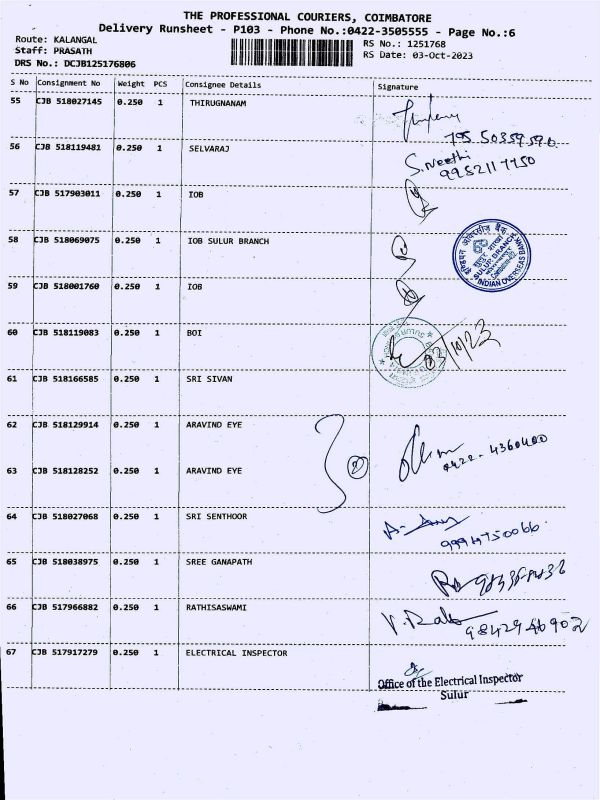 THE PROFESSIONAL COURIERS, COIMBATORE
Delivery Runsheet - P103 - Phone No.:0422-3505555 - Page No.:6
Route: KALANGAL
RS No.: 1251768
Staff: PRASATH
RS Date: 03-Oct-2023
DRS No.: DCJB125176806
S No Consignment No Weight PCS Consignee Details Signature
55 CJB 518027145 0.250 1 THIRUGNANAM
56 CJB 518119481 0.250 1 SELVARAJ
S.Neethi
9952117750
57 CJB 517903011 0.250 1 IOB
58 CJB 518069075 0.250 1 IOB SULUR BRANCH
SULUR BRANCH
INDIAN OVERSEAS BANK
59 CJB 518001760 0.250 1 IOB
60 CJB 518119083 0.250 1 BOI
03/10/23
61 CJB 518166585 0.250 1 SRI SIVAN
62 CJB 518129914 0.250 1 ARAVIND EYE
0422-4360400
2
63 CJB 518128252 0.250 1 ARAVIND EYE
64 CJB 518027068 0.250 1 SRI SENTHOOR
65 CJB 518038975 0.250 1 SREE GANAPATH
66 CJB 517966882 0.250 1 RATHISASWAMI
9842946902
67 CJB 517917279 0.250 1 ELECTRICAL INSPECTOR
Office of the Electrical Inspector
Sulur